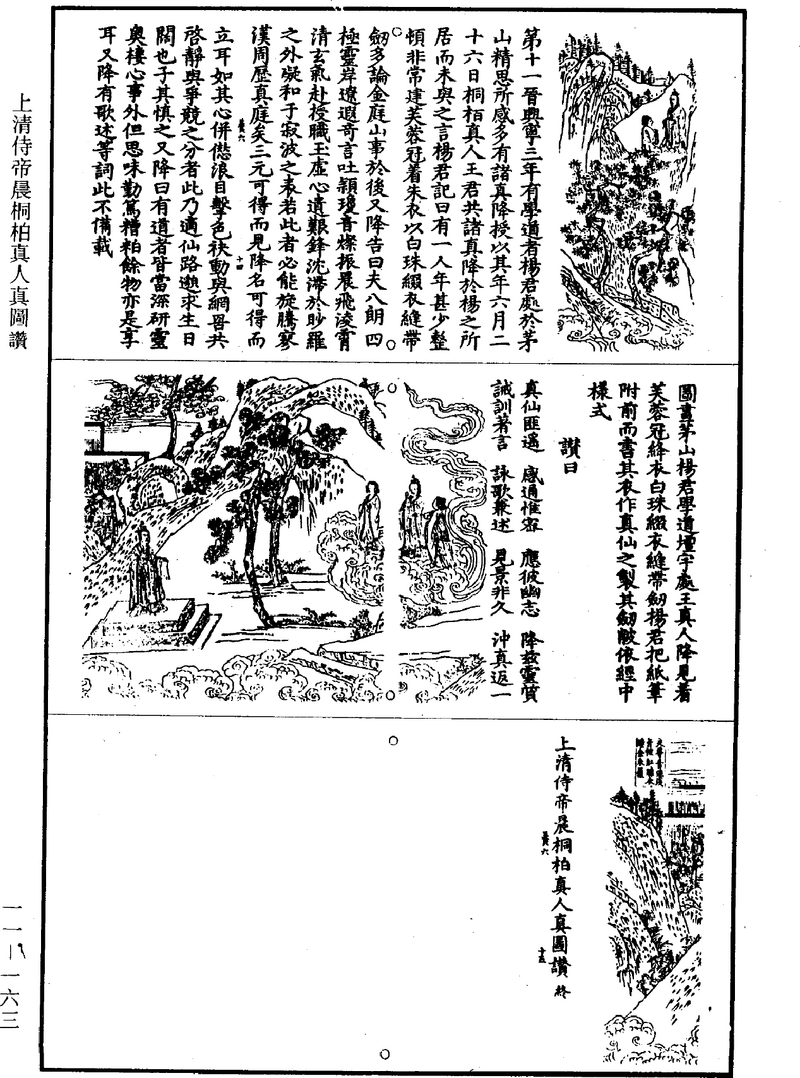 第十一晉興寧三年有學道者楊君處於茅
山精思所感多有諸真降授以其年六月二
十六日桐栢真人王君共諸真降於楊之所
居而未與之言楊君記曰有一人年甚少整
頓非常建芙蓉冠着朱衣以白珠綴衣縫帶
劒多論金庭山事於後又降告曰夫八朗四
極靈岸遼遐奇言吐穎瓊音燦振晨飛淩霄
清玄氣赴授職玉虛心遺艱鋒沈滯於眇羅
之外凝和于寂波之表若此者必能旋騰寥
漢周歷真庭矣三元可得而見降名可得而
立耳如其心併愆浪目擊色袂動與網罟共
啓靜與爭競之分者此乃適仙路邈求生日
闊也子其慎之又降曰有道者皆當深研靈
奧棲心事外但思味勤篤糟粕餘物亦是享
耳又降有歌述等詞此不備載
圖畫茅山楊君學道壇宇處王真人降見着
芙蓉冠絳衣白珠綴衣縫帶劒楊君把紙筆
附前而書其衣作真仙之製其劒敝依經中
樣式
讚曰
真仙匪遥 感通惟容 應彼幽志 降茲靈質
誠訓著言 詠歌兼述 見景非久 沖真返一
上清侍帝晨桐柏真人真圖讚 終
上清侍帝晨桐柏真人真圖讚
一一-一六三